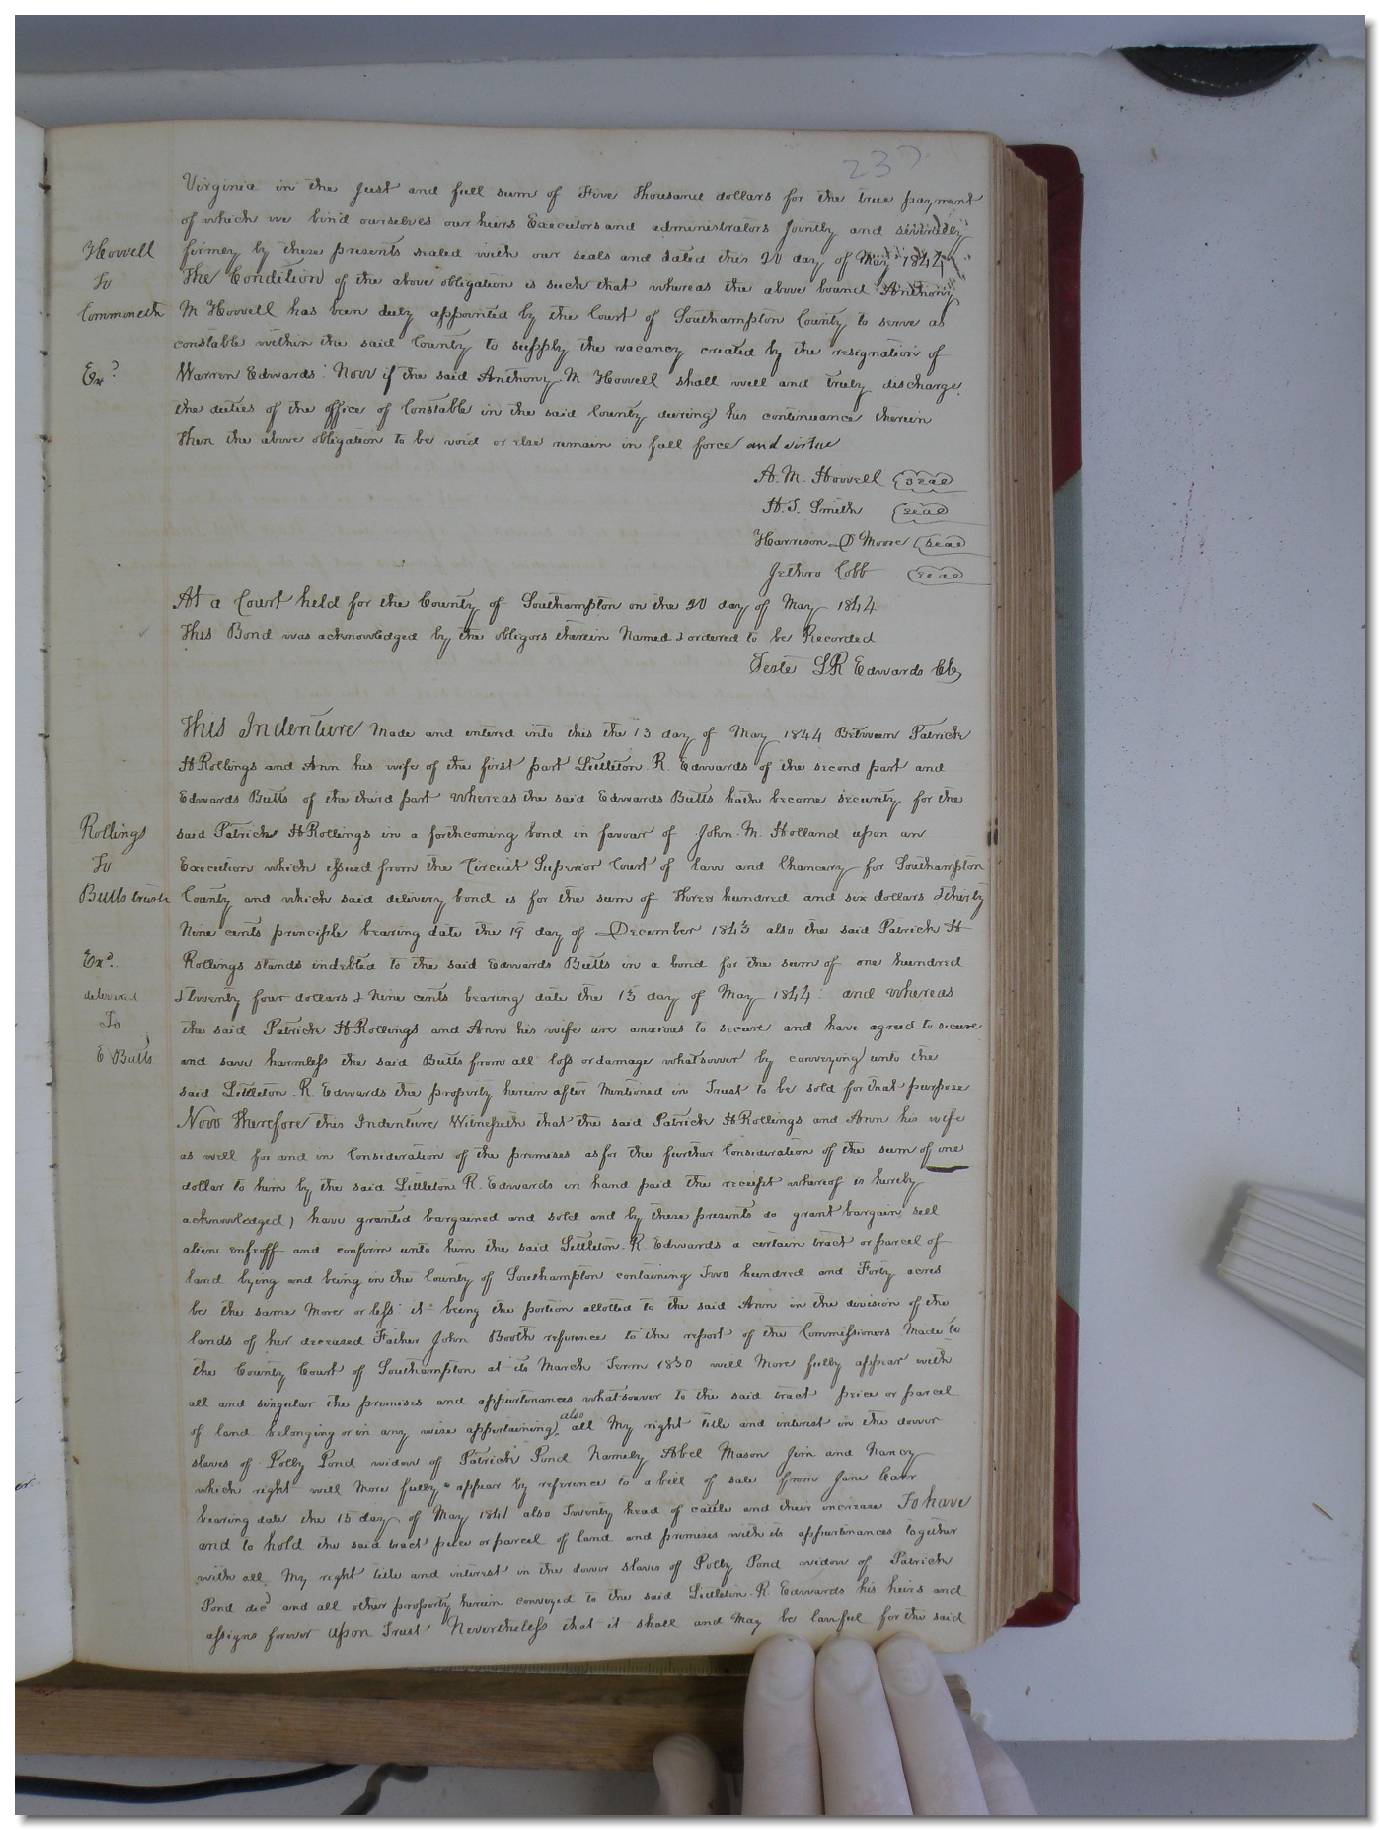 237
Virginia in the just and full sum of Five thousand dollars for the true payment
of which we bind ourselves our heirs Executors and administrators jointly and severally
Howell
firmly by these presents sealed with our seals and dated this 20 day of May 1844
To
The Condition of the above obligation is such that whereas the above bound Anthony
Commonwlth
M Howell has been duly appointed by the Court of Southampton County to serve as
constable within the said County to supply the vacancy created by the resignation of
Exd
Warren Edwards: Now if the said Anthony M Howell shall well and truly discharge
the duties of the office of Constable in the said County during his continuance therein
then the above obligation to be void or else remain in full force and virtue
A. M. Howell seal
H. T. Smith seal
Harrison D Moore seal
Jethro Cobb seal
At a Court held for the County of Southampton on the 20 day of May 1844
This Bond was acknowledged by the obligors therein Named & ordered to be Recorded
Teste LR Edwards Clk
This Indenture Made and entered into this the 13 day of May 1844 Between Patrick
H Rollings and Ann his wife of the first part Littleton R. Edwards of the second part and
Edwards Butts of the third part Whereas the said Edwards Butts hath become security for the
Rollings
said Patrick H Rollings in a forthcoming bond in favour of John M. Holland upon an
To
Execution which issued from the Circuit Superior Court of law and Chancery for Southampton
Butts trustee
County and which said delivery bond is for the sum of three hundred and six dollars & thirty
Nine cents principle bearing date the 19 day of December 1843 also the said Patrick H
Exd.
Rollings stands indebted to the said Edwards Butts in a bond for the sum of one hundred
delivered
& twenty four dollars & Nine cents bearing date the 13 day of May 1844: and whereas
To
the said Patrick H Rollings and Ann his wife are anxious to secure and have agreed to secure
E Butts
and save harmless the said Butts from all loss or damage whatsoever by conveying unto the
said Littleton R. Edwards the property herein after Mentioned in Trust to be sold for that purpose
Now Therefore this Indenture Witnesseth that the said Patrick H Rollings and Ann his wife
as well for and in Consideration of the premises as for the further Consideration of the sum of one
dollar to him by the said Littleton R. Edwards in hand paid the receipt whereof is hereby
acknowledged) have granted bargained and sold and by these presents do grant bargain sell
alien enfeoff and confirm unto him the said Littleton R. Edwards a certain tract or parcel of
land lying and being in the County of Southampton containing Two hundred and Forty acres
be the same More or less it being the portion allotted to the said Ann in the division of the
lands of her deceased Father John Booth reference to the report of the Commissioners Made to
the County Court of Southampton at its March Term 1830 will More fully appear with
all and singular the premises and appurtenances whatsoever to the said tract peice or parcel
of land belonging or in any wise appertaining, also all My right title and interest in the dower
slaves of Polly Pond widow of Patrick Pond Namely Abel Mason Jim and Nancy
which right will More fully appear by reference to a bill of sale from Jane Carr
bearing date the 15 day of May 1841 also Twenty head of cattle and their increase To have
and to hold the said tract peice or parcel of land and premises with its appurtenances together
with all My right title and interest in the dower slaves of Polly Pond widow of Patrick
Pond decd and all other property herein conveyed to the said Littleton R. Edwards his heirs and
assigns forever Upon Trust Nevertheless that it shall and May be lawful for the said